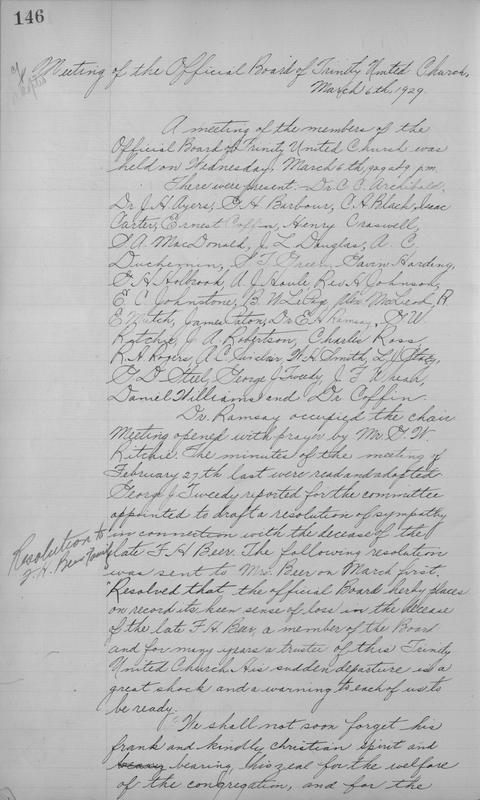 146
Meeting of the Official Board of Trinity United Church,
March 6th, 1929.
A meeting of the members of the
Official Board of Trinity United Church was
held on Wednesday, March 6th, 1929 at 9. p.m.
There were present: Dr. C. C. Archibald,
Dr J. H Ayers, G. H Barbour, C. H Black, Isaac
Carter, Ernest Coffin, Henry Craswell,
MacDonald, J. L Douglas, A. C.
Duchemin, Gavin Harding,
G H Holbrook, A. J. Houle, Rev H Johnson,
E C Johnstone, B. W LePage, Alex McLeod, R
E Mutch, James Paton, Dr E H Ramsay, G W
Ritchie, J. A. Robertson, Charles Ross,
R. A. Rogers, A. C. Sinclair, W. H. Smith,
G D Steel, George J Tweedy, J F Whear,
Daniel Williams and Dr Coffin.
Dr. Ramsay occupied the chair
Meeting opened with prayer by Mr. G. W.
Ritchie. The minutes of the meeting of
February 27th last were read and adopted
George J. Tweedy reported for the committee
appointed to draft a resolution of sympathy
in connection with the decease of the
Resolution to
F. H. Beers Family
late F H Beer. The following resolution
was sent to Mrs. Beer on March first.
Resolved that the official Board herby places
on record its keen sense of loss in the decease
of the late F. H. Beer, a member of the Board
and for many years a trustee of this Trinity
United Church. His sudden departure is a
great shock and a warning to each of us to
be ready.
"We shall not soon forget his
frank and kindly christian spirit and
bearing, his zeal for the welfare
of the congregation, and for the